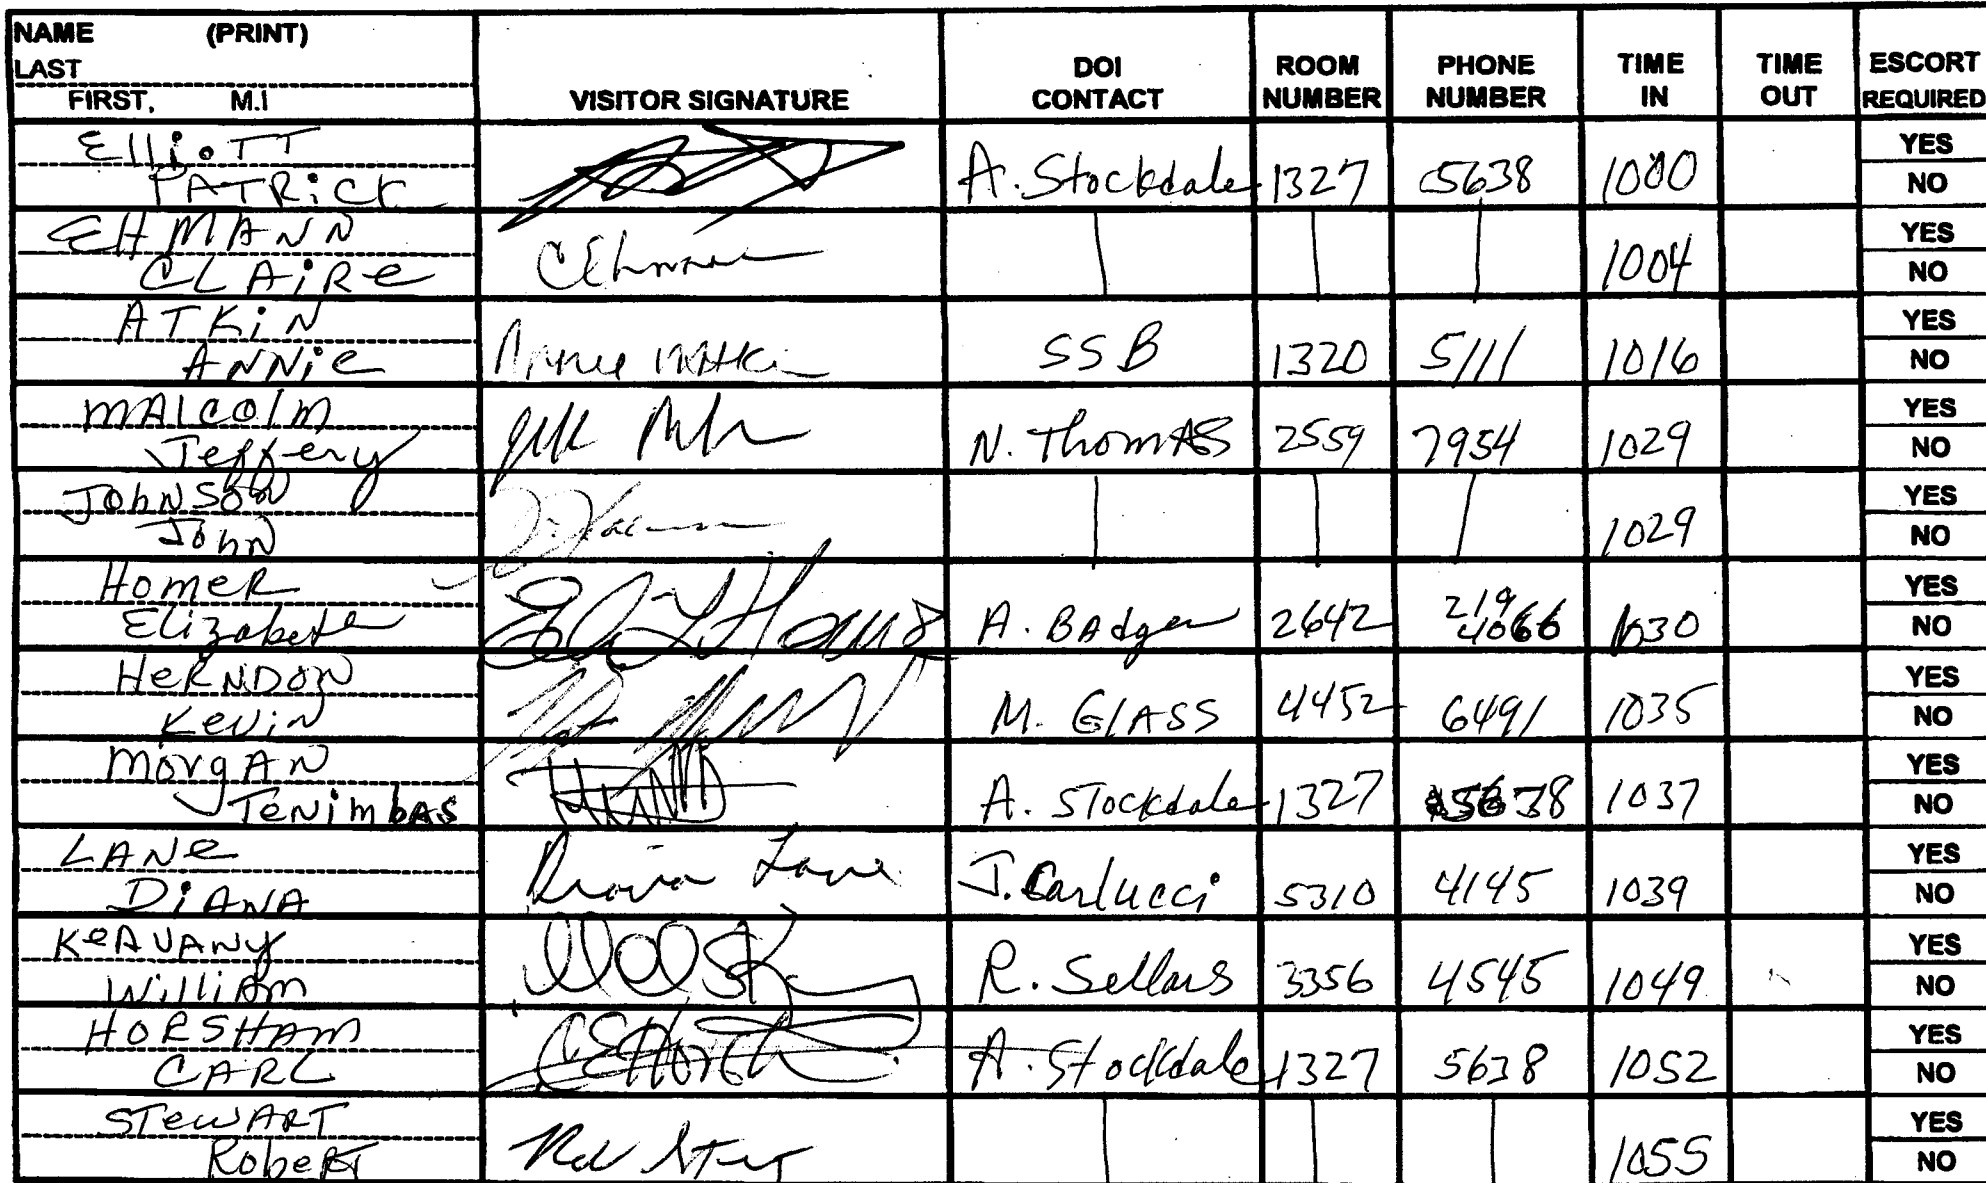 NAME (PRINT)
LAST
FIRST, M.I
VISITOR SIGNATURE
DOI CONTACT
ROOM NUMBER
PHONE NUMBER
TIME IN
TIME OUT
ESCORT REQUIRED
Elliott
PATRICK
A. Stockdale 1327 5638 1000
YES
NO
EHMANN
CLAIRE
1004
YES
NO
ATKIN
ANNIE
SSB 1320 5111 1016
YES
NO
MALCOLM
Jeffery
N. Thomas 2559 7954 1029
YES
NO
Johnson
John
1029
YES
NO
Homer
Elizabeth
A. Badger 2642 219 4066 1030
YES
NO
HERNDON
Kevin
M. Glass 4452 6491 1035
YES
NO
Morgan
Tenimbas
A. Stockdale 1327 5638 1037
YES
NO
LANE
DIANA
Diana Lane
J. Carlucci 5310 4145 1039
YES
NO
KeAVANY
William
R. Sellars 3356 4545 1049
YES
NO
HORSHAM
CARL
A. Stockdale 1327 5638 1052
YES
NO
STEWART
Robert
1055
YES
NO